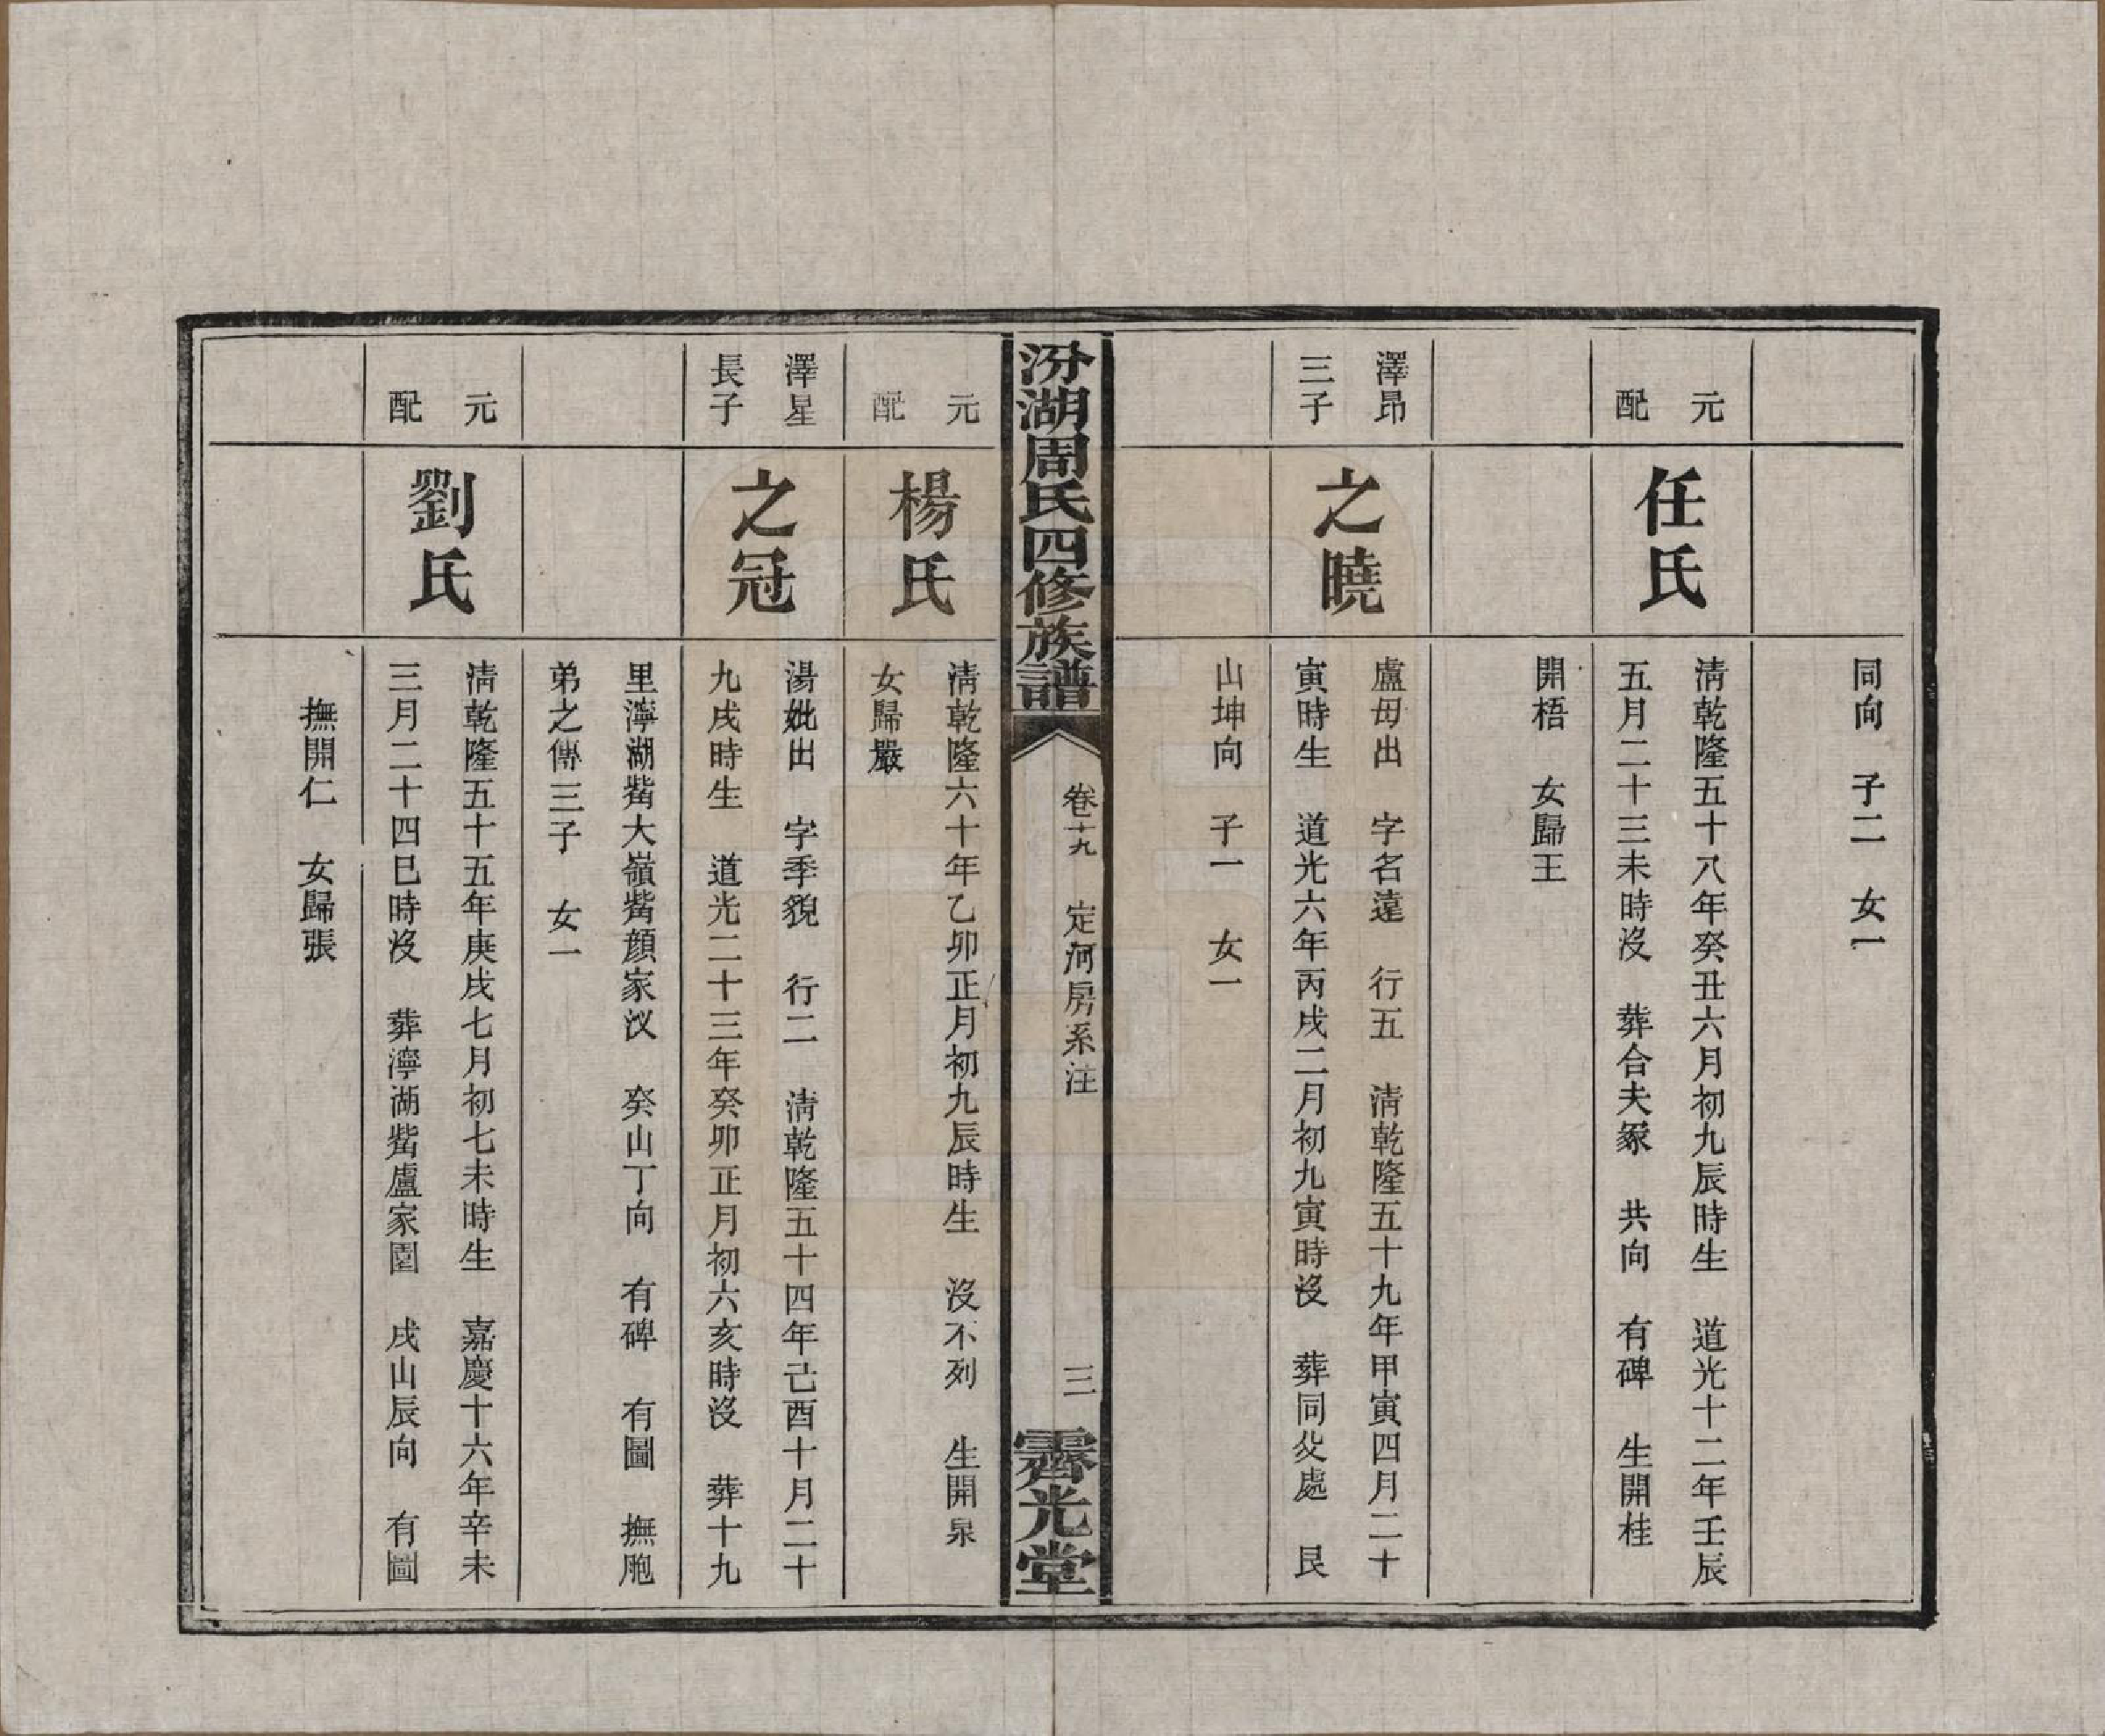 同向　子二　女一
元配
任氏
淸乾隆五十八年癸丑六月初九辰時生　道光十二年壬辰
五月二十三未時沒　葬合夫冢　共向　有碑　生開桂
開梧　女歸王
澤昂
三子
之曉
盧母出　字名遠　行五　淸乾隆五十九年甲寅四月二十
寅時生　道光六年丙戌二月初九寅時沒　葬同父處　艮
山坤向　子一　女一
汾湖周氏四修族譜
卷十九　定河房系注
三
霽光堂
元配
楊氏
淸乾隆六十年乙卯正月初九辰時生　沒不列　生開泉
女歸嚴
澤星
長子
之冠
湯妣出　字季貌　行二　淸乾隆五十四年己酉十月二十
九戌時生　道光二十三年癸卯正月初六亥時沒　葬十九
里濘湖觜大嶺觜顏家汊　癸山丁向　有碑　有圖　撫胞
弟之傳三子　女一
元配
劉氏
淸乾隆五十五年庚戌七月初七未時生　嘉慶十六年辛未
三月二十四巳時沒　葬濘湖觜盧家園　戌山辰向　有圖
撫開仁　女歸張